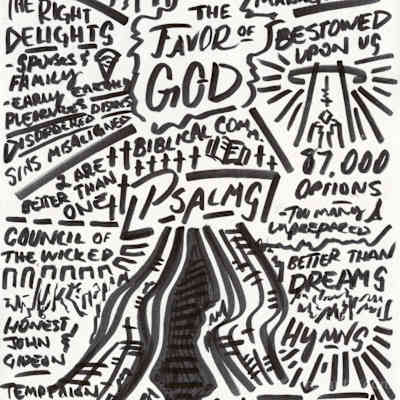 THE RIGHT
DELIGHTS
- SPOUSES &
FAMILY
- EARLY EARTHLY
PLEASURES
DISORDERED DESIRES
SINS MISALIGNED
THE
FAVOR OF
GOD
BESTOWED
UPON US
BIBLICAL COMM.
2 ARE
BETTER THAN
ONE
PSALMS
87,000
OPTIONS
- TOO MANY
UNPREPARED
COUNCIL OF
THE WICKED
HONEST
JOHN &
GIDEON
TEMPTATION
BETTER THAN
DREAMS
HYMNS